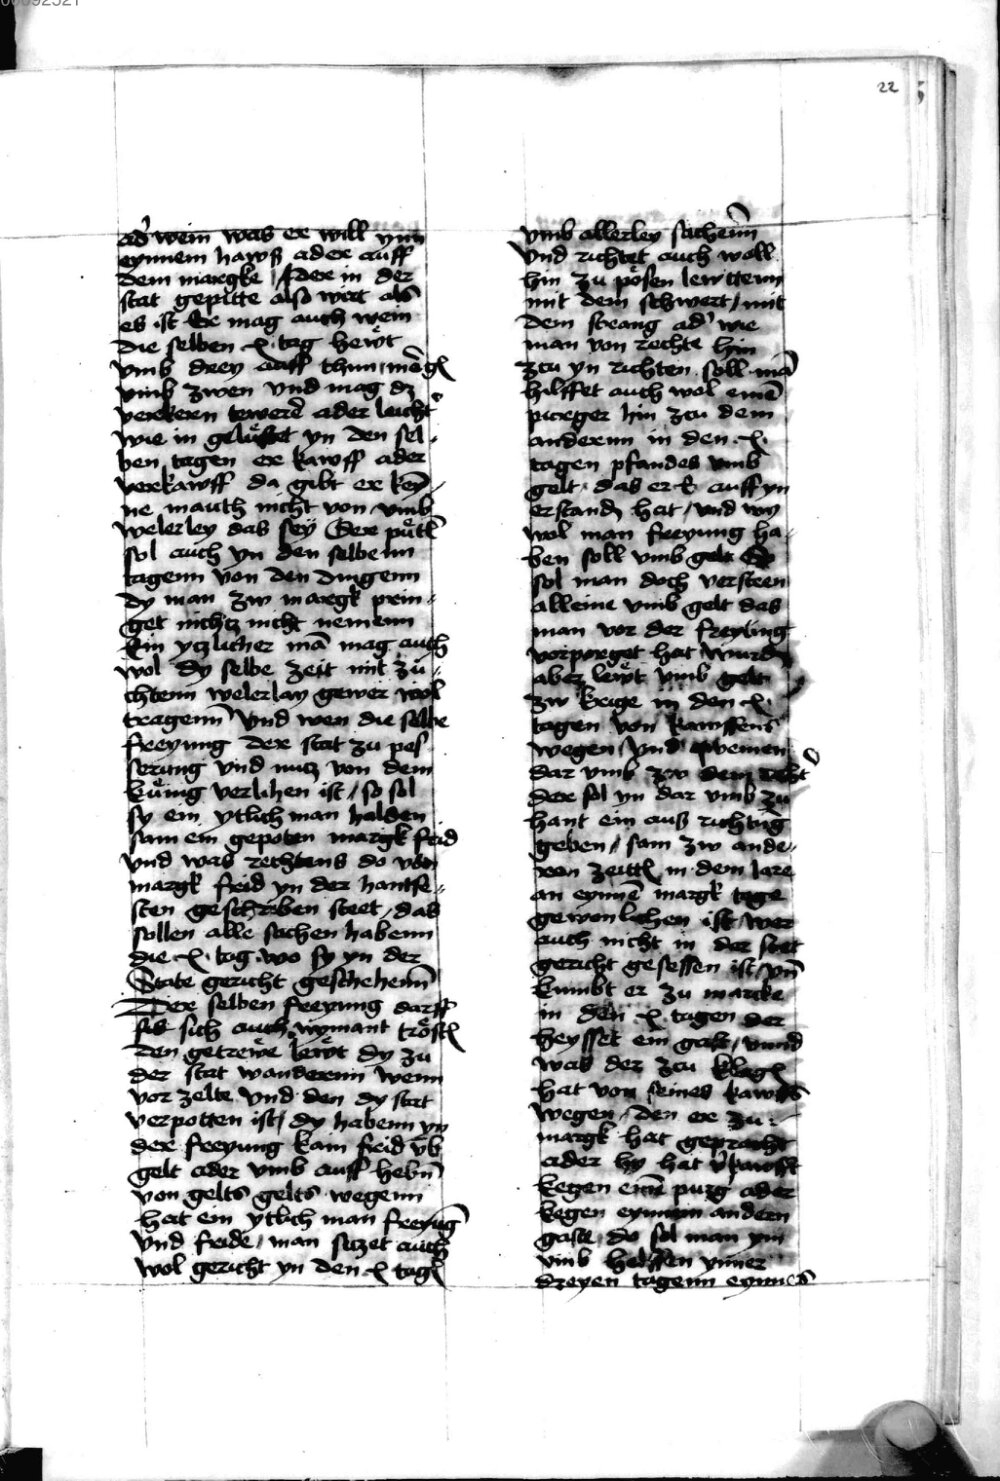 22
ad' wein was er will ynn
eynnem hawß ader auff
dem margke / Ader in der
stat gepitte also wert als
es ist Er mag auch wein
die selben .x. tag hewt
vmb drey auff thun morgn̄
vmb zwen vnd mag dz
verkern tewerē ader leicht'
wie in gelustet yn den sel-
ben tagen er kawff ader
verkawff da gibt er key-
ne mauth nicht von / vmb
welerley das sey Der puttl
sol auch yn den selbenn
tagenn von den dingenn
dy man zw margk prin-
get nichtz nicht nemenn
Ein yczlicher mā mag auch
wol dy selbe zeit mit zu-
chtenn welerlay gewer wol
tragenn Vnd wen die selbe
freyung der stat zu pes-
serung vnd nutz von dem
kunig verlihen ist / so sol
sy ein ytlich man halden
sam ein gepoten margk frid
vnd was rechtens do von
margk freid yn der hantfe-
sten geschriben steet / das
sollen alle sachen habenn
die .x. tag wo sy yn der
State gericht geschehenn
Der selben freyung darff
sich auch nymant trostn̄
den getrewe lewt dy zu
der stat wanderenn wenn
vor zelte vnd den dy stat
verpotten ist / dy habenn yn
der freyung kain freid vb
gelt ader vmb auff hebn̄
von gelts gelts wegenn
hat ein ytlich man freyūg
vnd freide / man siczet auch
wol gericht yn den .x. tagn̄
vmb allerley sachenn
vnd richtet auch woll
hin zu posen lewttenn
mit dem schwert / mit
dem strang ad' wie
man von rechte hin
zcu yn richten soll mā
hilffet auch wol einē
purger hin zcu dem
anderenn in den .x.
tagen pfandes vmb
gelt das er auff yn
erstandn̄ hat / vnd wy
wol man freyung ha-
ben soll vmb gelt So
sol man doch versteen
alleine vmb gelt das
man vor der freyung
vorporget hat Wurdn̄
aber lewt vmb gelt
zw krige in den .x.
tagen von kawffens
wegen / vnd qwemen
dar vmb zw dem recht'
der sol yn dar vmb zu
hant ein auß richtūg
geben / sam zw ande-
ren zeittn̄ in dem Jare
an eynnē margk tage
gewonlichen ist / wer
auch nicht in der stat
gericht gesessen ist / vn̄
kumbt er zu marcke
in den .x. tagen der
heysset ein gast / vnnd
was der zcu klagn̄
hat von seines kawffs
wegen / den er zu
margk hat gepracht
ader hy hat v'kawfft
kegen einē purg' ader
kegen eynnem andern
gaste / do sol man ym
vmb helffen ynner
dreyen tagenn eynnes